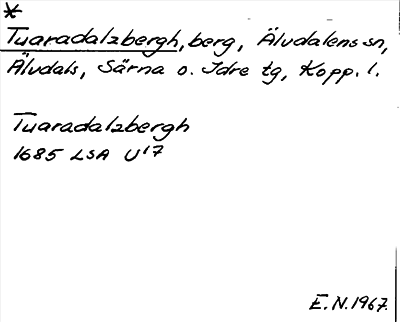 *
Tuaradalzbergh, berg, Älvdalens sn,
Älvdals, Särna o. Idre tg, Kopp. l.
Tuaradalzbergh
1685 LSA U17
E.N. 1967.